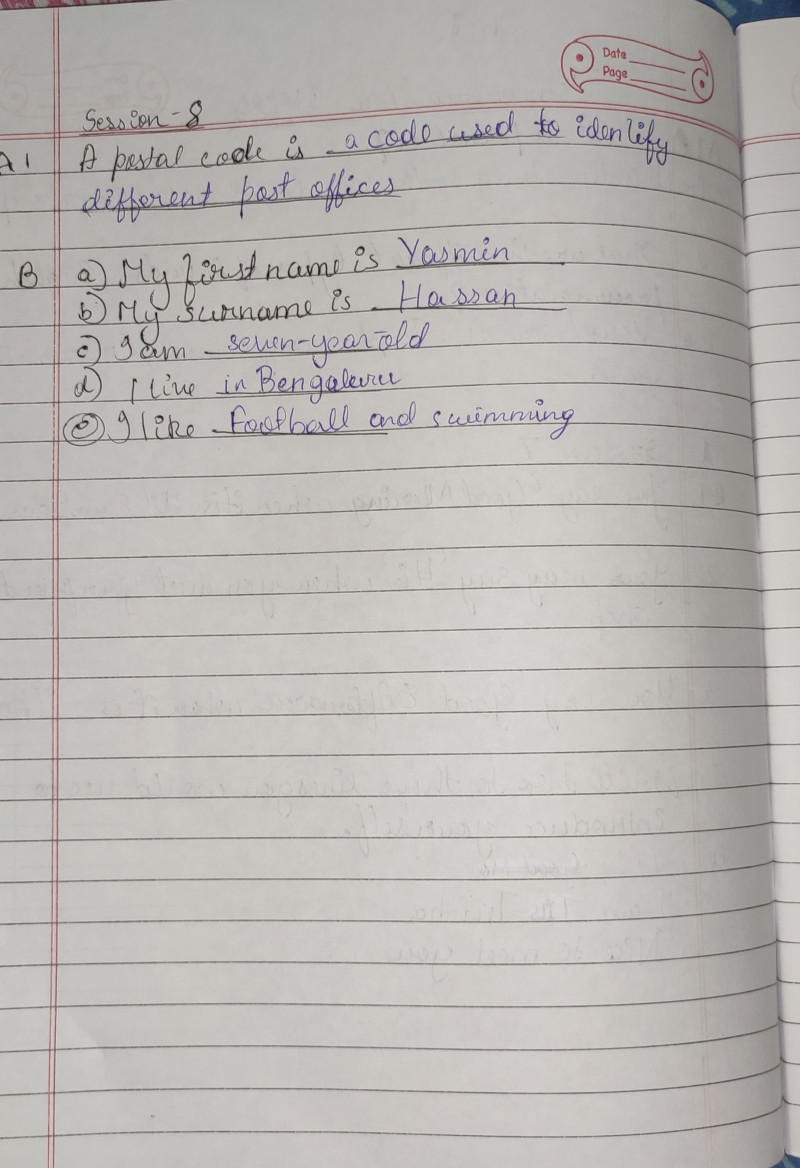 Date
Page
Session-8
A1 A postal code is a code used to identify
different post offices
B a) My first name is Yasmin
b) My surname is Hassan
c) I am seven-year old
d) I live in Bengaluru
e) I like Football and swimming